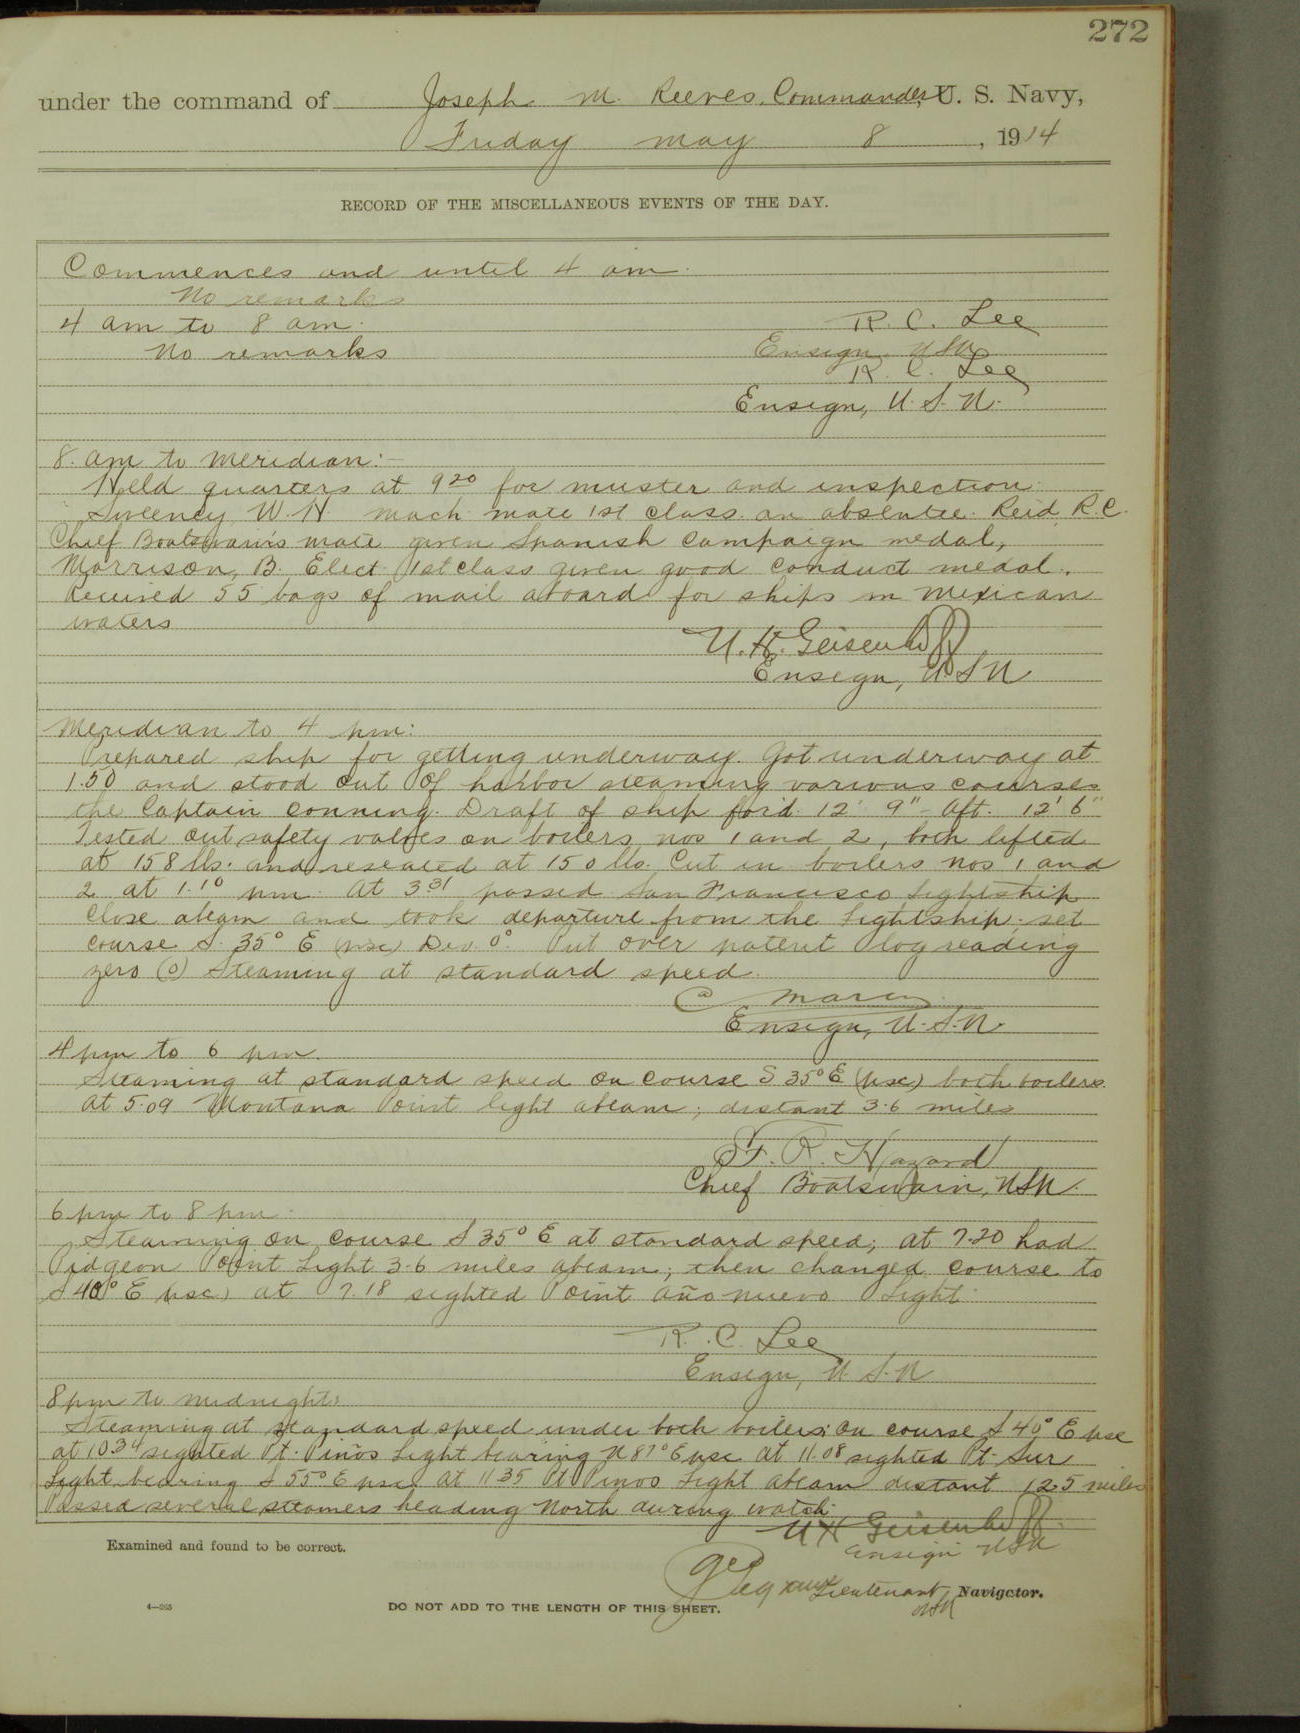 272
under the command of Joseph M. Reeves, Commander, U. S. Navy,
Friday May 8, 1914
RECORD OF THE MISCELLANEOUS EVENTS OF THE DAY.
Commences and until 4 am.
No remarks
4 am to 8 am.
R. C. Lee
No remarks
Ensign USN
R. C. Lee
Ensign, U.S.N.
8 am to Meridian:—
Held quarters at 9 20 for muster and inspection
Sweeney, W.H. Mach mate 1st class an absentee. Reid, R.C.
Chief Boatswain's mate given Spanish Campaign medal,
Morrison, B. Elect 1st class given good conduct medal.
Received 55 bags of mail aboard for ships in Mexican
waters
U.H. Geisenhoff
Ensign, USN
Meridian to 4 pm:
Prepared ship for getting underway. Got underway at
1.50 and stood out of harbor steaming various courses
the Captain conning. Draft of ship for'd. 12' 9" - Aft. 12' 6"
Tested out safety valves on boilers nos 1 and 2, both lifted
at 158 lbs. and reseated at 150 lbs. Cut in boilers nos 1 and
2 at 1.10 pm. At 3 31 passed San Francisco Lightship
close abeam and took departure from the lightship, set
course S. 35° E (psc) Dev. 0°. Put over patent log reading
zero (0) Steaming at standard speed.
Ensign, U.S.N.
4 pm to 6 pm.
Steaming at standard speed on course S 35° E (psc) both boilers.
At 5.09 Montana Point light abeam; distant 3.6 miles
F. R. Hazard
Chief Boatswain, USN.
6 pm to 8 pm.
Steaming on course S 35° E at standard speed; at 7.20 had
Pidgeon Point Light 3.6 miles abeam; then changed course to
S 40° E (psc) at 7.18 sighted Point Año nuevo Light
R. C. Lee
Ensign, U.S.N
8 pm to midnight:
Steaming at standard speed under both boilers on course S 40° E psc
at 10 34 sighted Pt. Pinos Light bearing N 87° E psc At 11.08 sighted Pt. Sur
Light bearing S 55° E psc At 11 35 Pt Pinos Light abeam distant 12.5 miles
Passed several steamers heading North during watch.
U H Geisenhoff
Ensign USN
Examined and found to be correct.
Lieutenant, Navigator.
USN
4—265
DO NOT ADD TO THE LENGTH OF THIS SHEET.